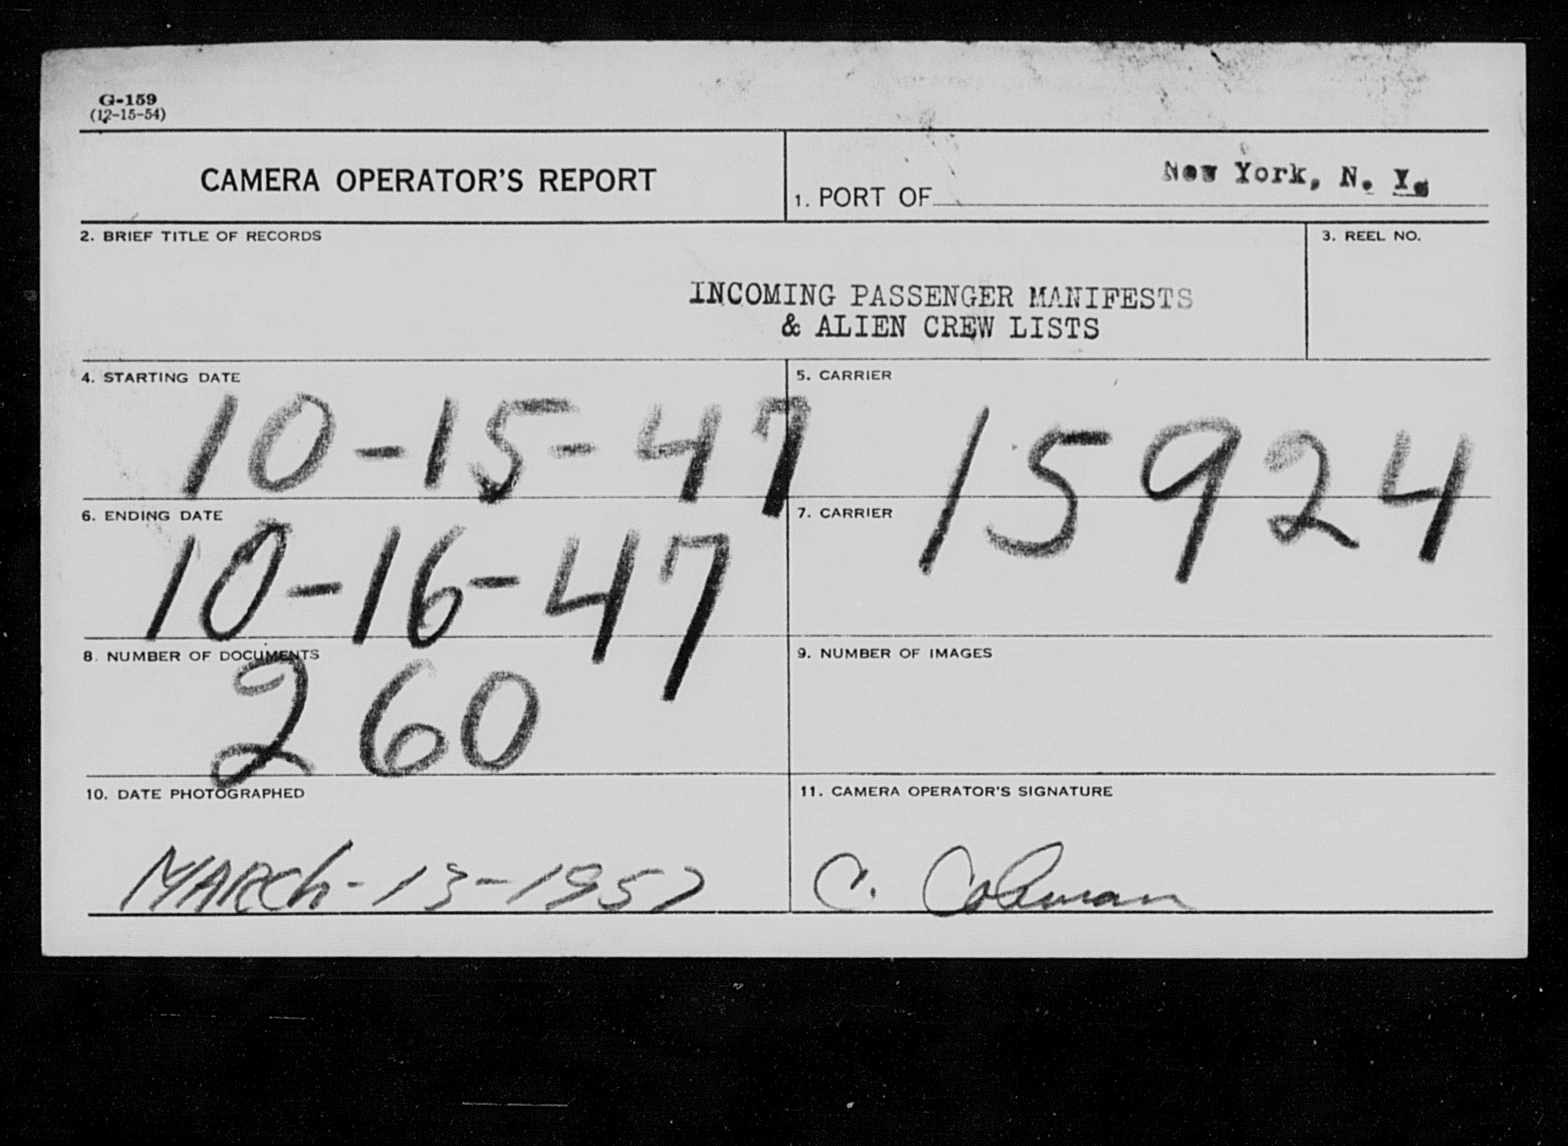 G-159
(12-15-54)
CAMERA OPERATOR'S REPORT
1. PORT OF New York, N. Y.
2. BRIEF TITLE OF RECORDS
INCOMING PASSENGER MANIFESTS
& ALIEN CREW LISTS
3. REEL NO.
4. STARTING DATE
10-15-47
5. CARRIER
15924
6. ENDING DATE
10-16-47
7. CARRIER
8. NUMBER OF DOCUMENTS
260
9. NUMBER OF IMAGES
10. DATE PHOTOGRAPHED
MARCh-13-1957
11. CAMERA OPERATOR'S SIGNATURE
C. Coleman